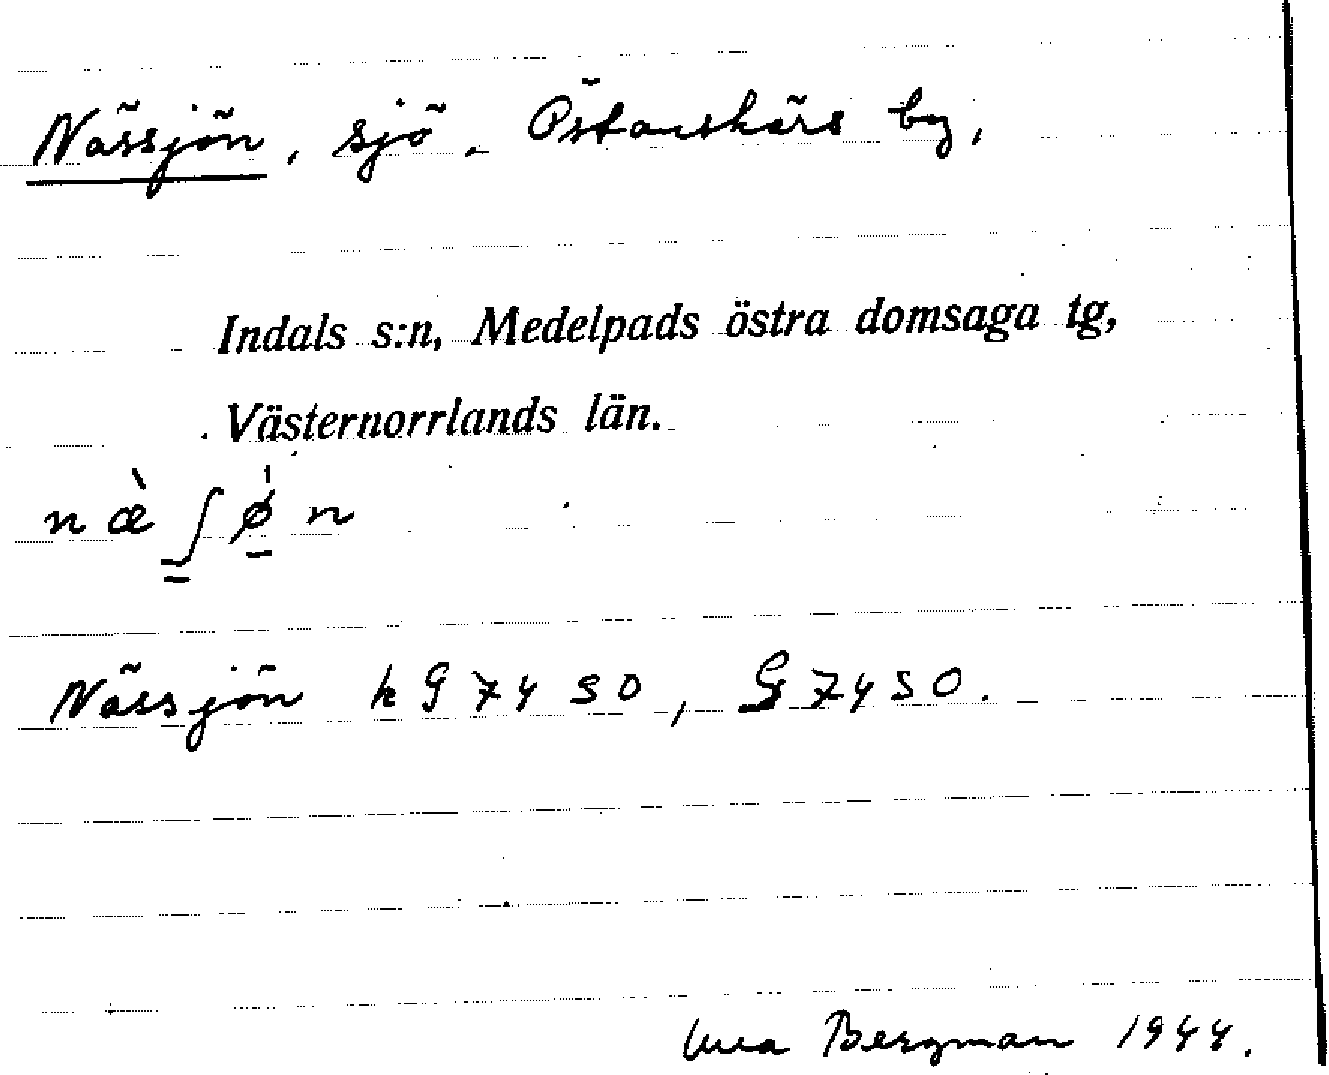 Nässjön, sjö. Östanskärs by,
Indals s:n, Medelpads östra domsaga tg,
Västernorrlands län.
næ̀ʃǿn
Nässjön kG 74 SO, G 74 SO.
Bergman 1944.